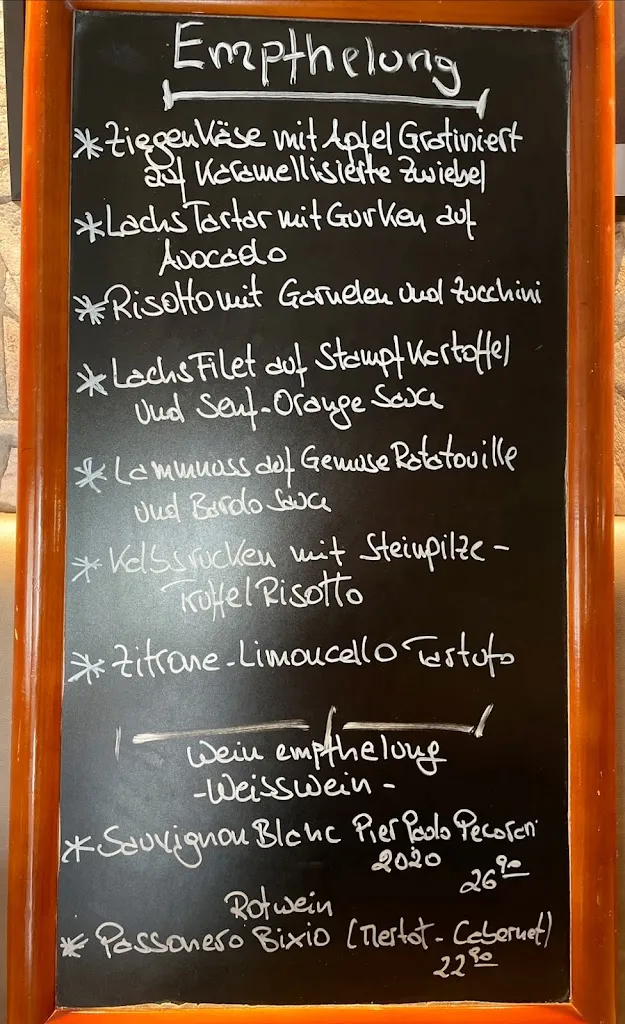 Empfhelung
* Ziegenkäse mit Apfel Gratiniert
auf Karamellisierte Zwiebel
* Lachs Tartar mit Gurken auf
Avocado
* Risotto mit Garnelen und Zucchini
* Lachs Filet auf Stampf Kartoffel
und Senf-Orange Sauce
* Lammnuss auf Gemüse Ratatouille
und Barolo Sauce
* Kalbsrucken mit Steinpilze-
Trüffel Risotto
* Zitrone-Limoncello Tartufo
Wein empfhelung
-Weisswein-
* Sauvignon Blanc Pier Paolo Pecorari
2020
26 90
Rotwein
* Passonero Bixio (Merlot-Cabernet)
22 90